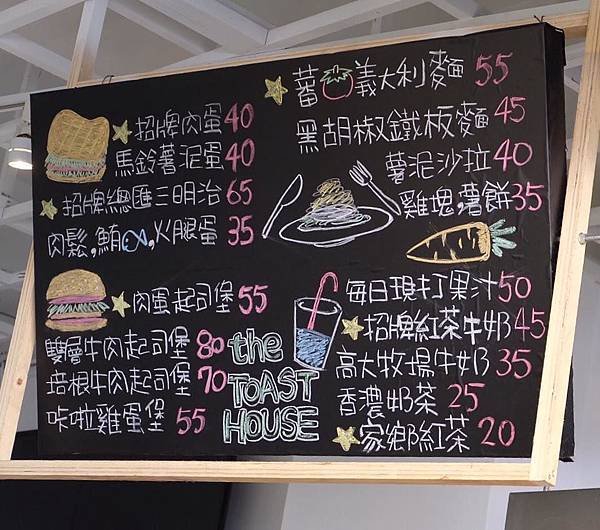 招牌肉蛋40
馬鈴薯泥蛋40
招牌總匯三明治65
肉鬆,鮪,火腿蛋 35
肉蛋起司堡 55
雙層牛肉起司堡 80
培根牛肉起司堡 70
咔啦雞蛋堡 55
the
TOAST
HOUSE
蕃義大利麵 55
黑胡椒鐵板麵 45
薯泥沙拉 40
雞塊,薯餅35
每日現打果汁50
招牌紅茶牛奶45
高大牧場牛奶 35
香濃奶茶 25
家鄉紅茶 20